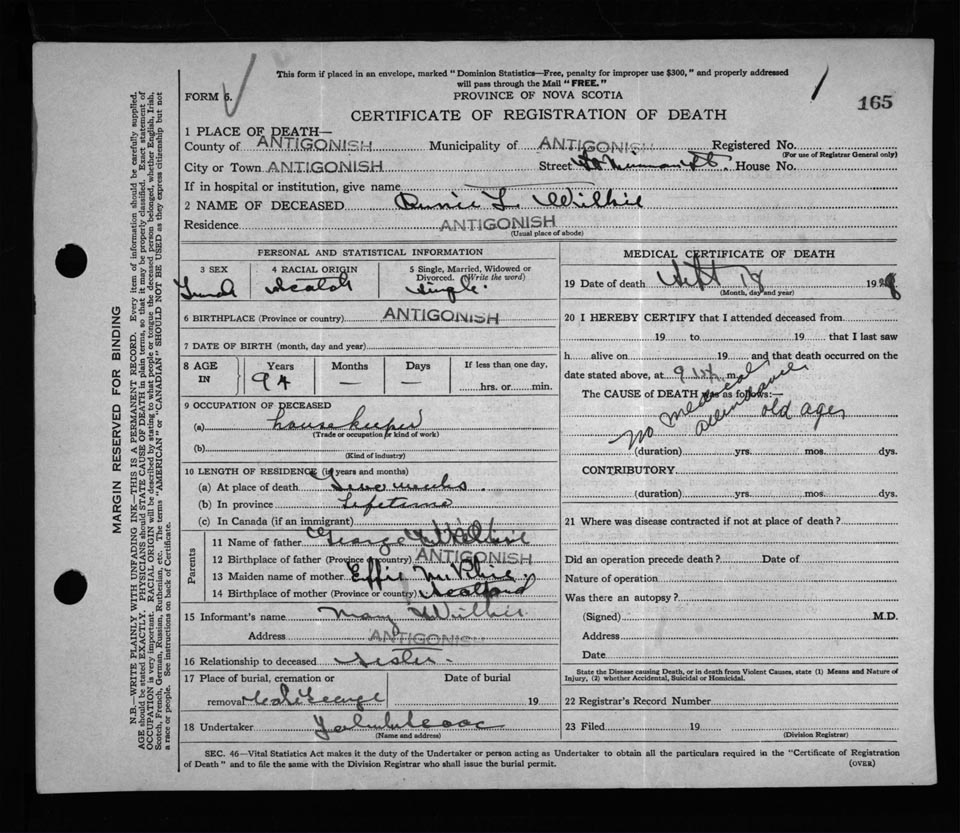 This form if placed in an envelope, marked "Dominion Statistics—Free, penalty for improper use $300," and properly addressed
will pass through the Mail "FREE."
FORM 6.
PROVINCE OF NOVA SCOTIA
165
CERTIFICATE OF REGISTRATION OF DEATH
1 PLACE OF DEATH—
County of ANTIGONISH Municipality of ANTIGONISH Registered No.
(For use of Registrar General only)
City or Town ANTIGONISH Street House No.
If in hospital or institution, give name
2 NAME OF DECEASED Wilkie
Residence ANTIGONISH
(Usual place of abode)
PERSONAL AND STATISTICAL INFORMATION
3 SEX 4 RACIAL ORIGIN 5 Single, Married, Widowed or
Divorced. (Write the word)
Scotch single.
6 BIRTHPLACE (Province or country) ANTIGONISH
7 DATE OF BIRTH (month, day and year)
8 AGE IN Years Months Days If less than one day,
94 — — hrs. or min.
9 OCCUPATION OF DECEASED
(a) housekeeper
(Trade or occupation or kind of work)
(b)
(Kind of industry)
10 LENGTH OF RESIDENCE (in years and months)
(a) At place of death weeks.
(b) In province Lifetime
(c) In Canada (if an immigrant)
Parents
11 Name of father George Wilkie
12 Birthplace of father (Province or country) ANTIGONISH
13 Maiden name of mother Effie
14 Birthplace of mother (Province or country) Scotland
15 Informant's name Mary Wilkie
Address ANTIGONISH
16 Relationship to deceased sister.
17 Place of burial, cremation or Date of burial
removal George 19
18 Undertaker
(Name and address)
MEDICAL CERTIFICATE OF DEATH
19 Date of death Sept 18 192
(Month, day and year)
20 I HEREBY CERTIFY that I attended deceased from
19 to 19 that I last saw
h alive on 19 and that death occurred on the
date stated above, at 9 m.
The CAUSE of DEATH was as follows:—
No medical attendance
old age
(duration) yrs. mos. dys.
CONTRIBUTORY
(duration) yrs. mos. dys.
21 Where was disease contracted if not at place of death?
Did an operation precede death? Date of
Nature of operation
Was there an autopsy?
(Signed) M.D.
Address
Date
State the Disease causing Death, or in death from Violent Causes, state (1) Means and Nature of
Injury, (2) whether Accidental, Suicidal or Homicidal.
22 Registrar's Record Number
23 Filed 19
(Division Registrar)
SEC. 46—Vital Statistics Act makes it the duty of the Undertaker or person acting as Undertaker to obtain all the particulars required in the "Certificate of Registration
of Death" and to file the same with the Division Registrar who shall issue the burial permit. (OVER)
MARGIN RESERVED FOR BINDING
N.B.—WRITE PLAINLY WITH UNFADING INK—THIS IS A PERMANENT RECORD. Every item of information should be carefully supplied.
AGE should be stated EXACTLY. PHYSICIANS should STATE CAUSE OF DEATH in plain terms, so that it may be properly classified. Exact statement of
OCCUPATION is very important. RACIAL ORIGIN will be described by stating to what people or tongue the deceased person belonged, whether English, Irish,
Scotch, French, German, Russian, Ruthenian, etc. The terms "AMERICAN" or "CANADIAN" SHOULD NOT BE USED as they express citizenship but not
a race or people. See instructions on back of Certificate.